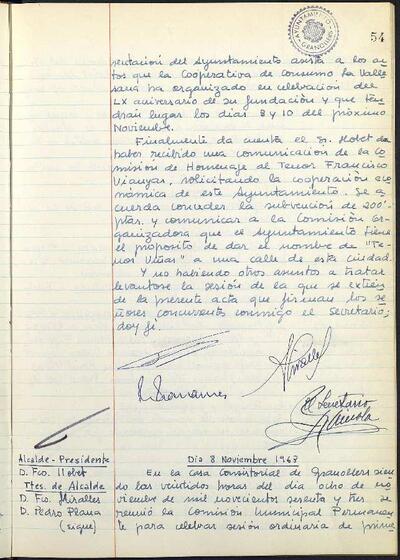 AYUNTAMIENTO
GRANOLLERS
54
sentación del Ayuntamiento asista a los ac-
tos que la Cooperativa de Consumo La Valle
sana ha organizado en celebración del
LX aniversario de su fundación y que ten
drán lugar los dias 8 y 10 del próximo
Noviembre.
Finalmente da cuenta el Sr. Llobet de
haber recibido una comunicación de la Co
misión de Homenaje al Tenor Francisco
solicitando la cooperación eco
nómica de este Ayuntamiento. Se a
cuerda conceder la subvención de 200'-
ptas. y comunicar a la Comisión Or-
ganizadora que el Ayuntamiento tiene
el propósito de dar el nombre de "Te-
nor Viñas" a una calle de esta ciudad.
Y no habiendo otros asuntos a tratar
levantose la sesión de la que se extien
de la presente acta que firman los se
ñores concurrentes conmigo el Secretario;
doy fé.
El Secretario
Alcalde-Presidente
D. Fco. Llobet
Ttes. de Alcalde
D. Fco. Miralles
D. Pedro Plana
(sigue)
Dia 8 Noviembre 1963
En la Casa Consistorial de Granollers sien
do las veintidos horas del dia ocho de no
viembre de mil novecientos sesenta y tres se
reunió la Comisión Municipal Permanen
te para celebrar sesión ordinaria de prime